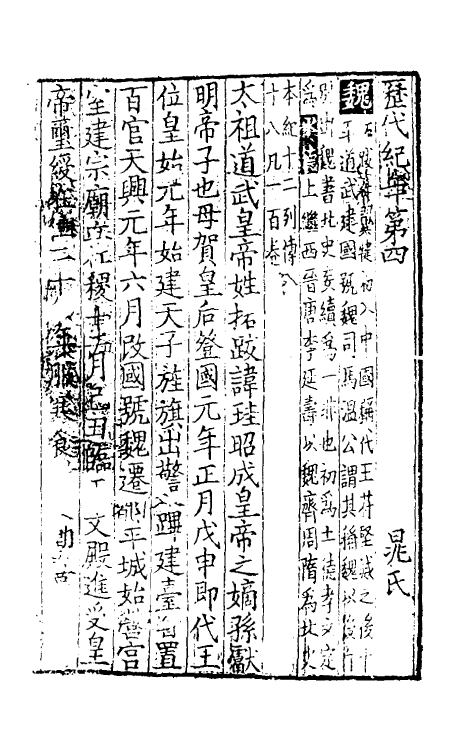 歷代紀年第四 晁氏
魏 拓跋 犍初入中國稱代王苻堅滅之後
年道武建國號魏司馬溫公謂其稱魏
魏書北史 續為一 也初為土德孝文定
為 上繼西晉唐李延壽以魏齊周隋為北史
本紀十二列傳八
十八凡一百卷
太祖道武皇帝姓拓跋諱珪昭成皇帝之嫡孫獻
明帝子也母賀皇后登國元年正月戊申即代王
位皇始元年始建天子旌旗出警入蹕建臺省置
百官天興元年六月改國號魏遷都平城始營宮
室建宗廟 社稷十 月 丑臨 文殿進受皇
帝璽綬